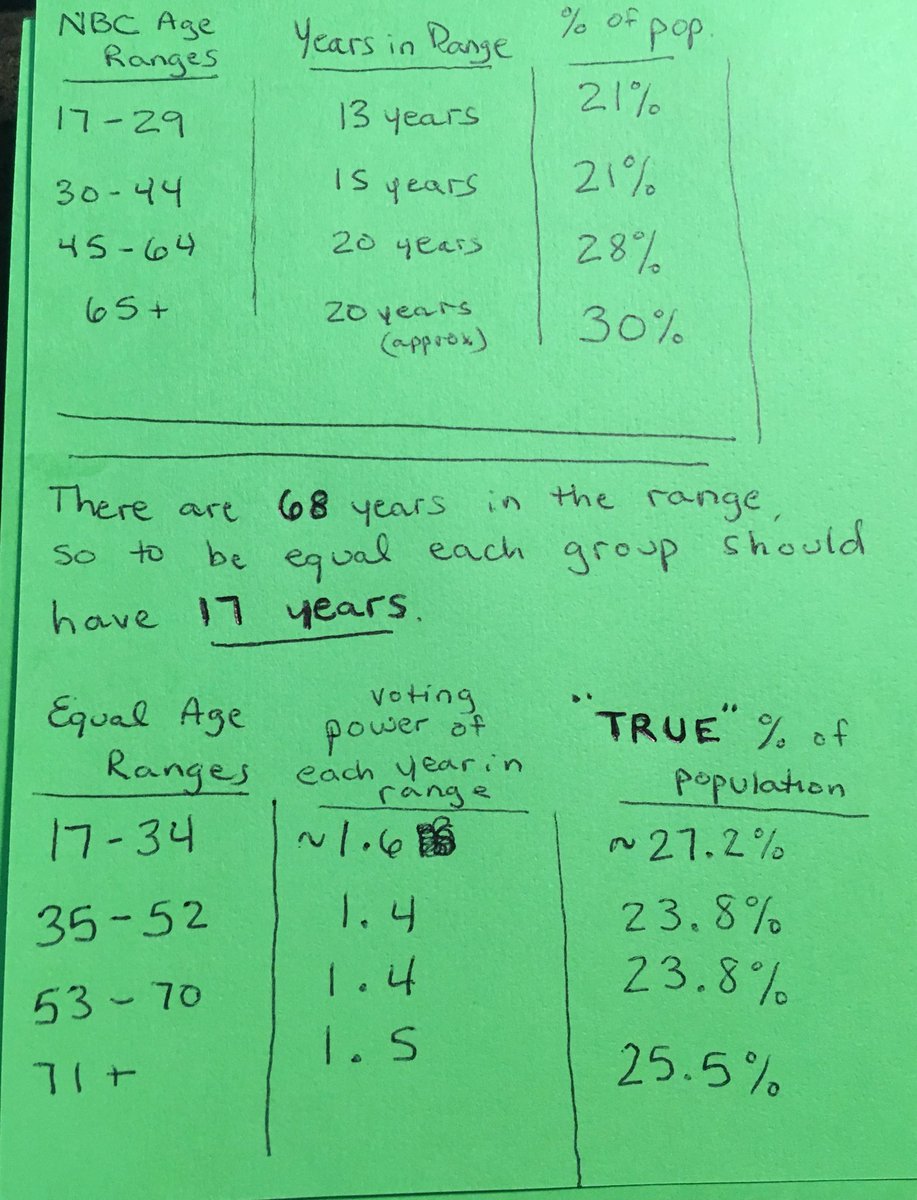 NBC Age Ranges | Years in Range | % of pop.
17-29 | 13 years | 21%
30-44 | 15 years | 21%
45-64 | 20 years | 28%
65+ | 20 years (approx) | 30%
There are 68 years in the range,
so to be equal each group should
have 17 years.
Equal Age Ranges | voting power of each year in range | "TRUE" % of population
17-34 | ~1.6 | ~27.2%
35-52 | 1.4 | 23.8%
53-70 | 1.4 | 23.8%
71+ | 1.5 | 25.5%